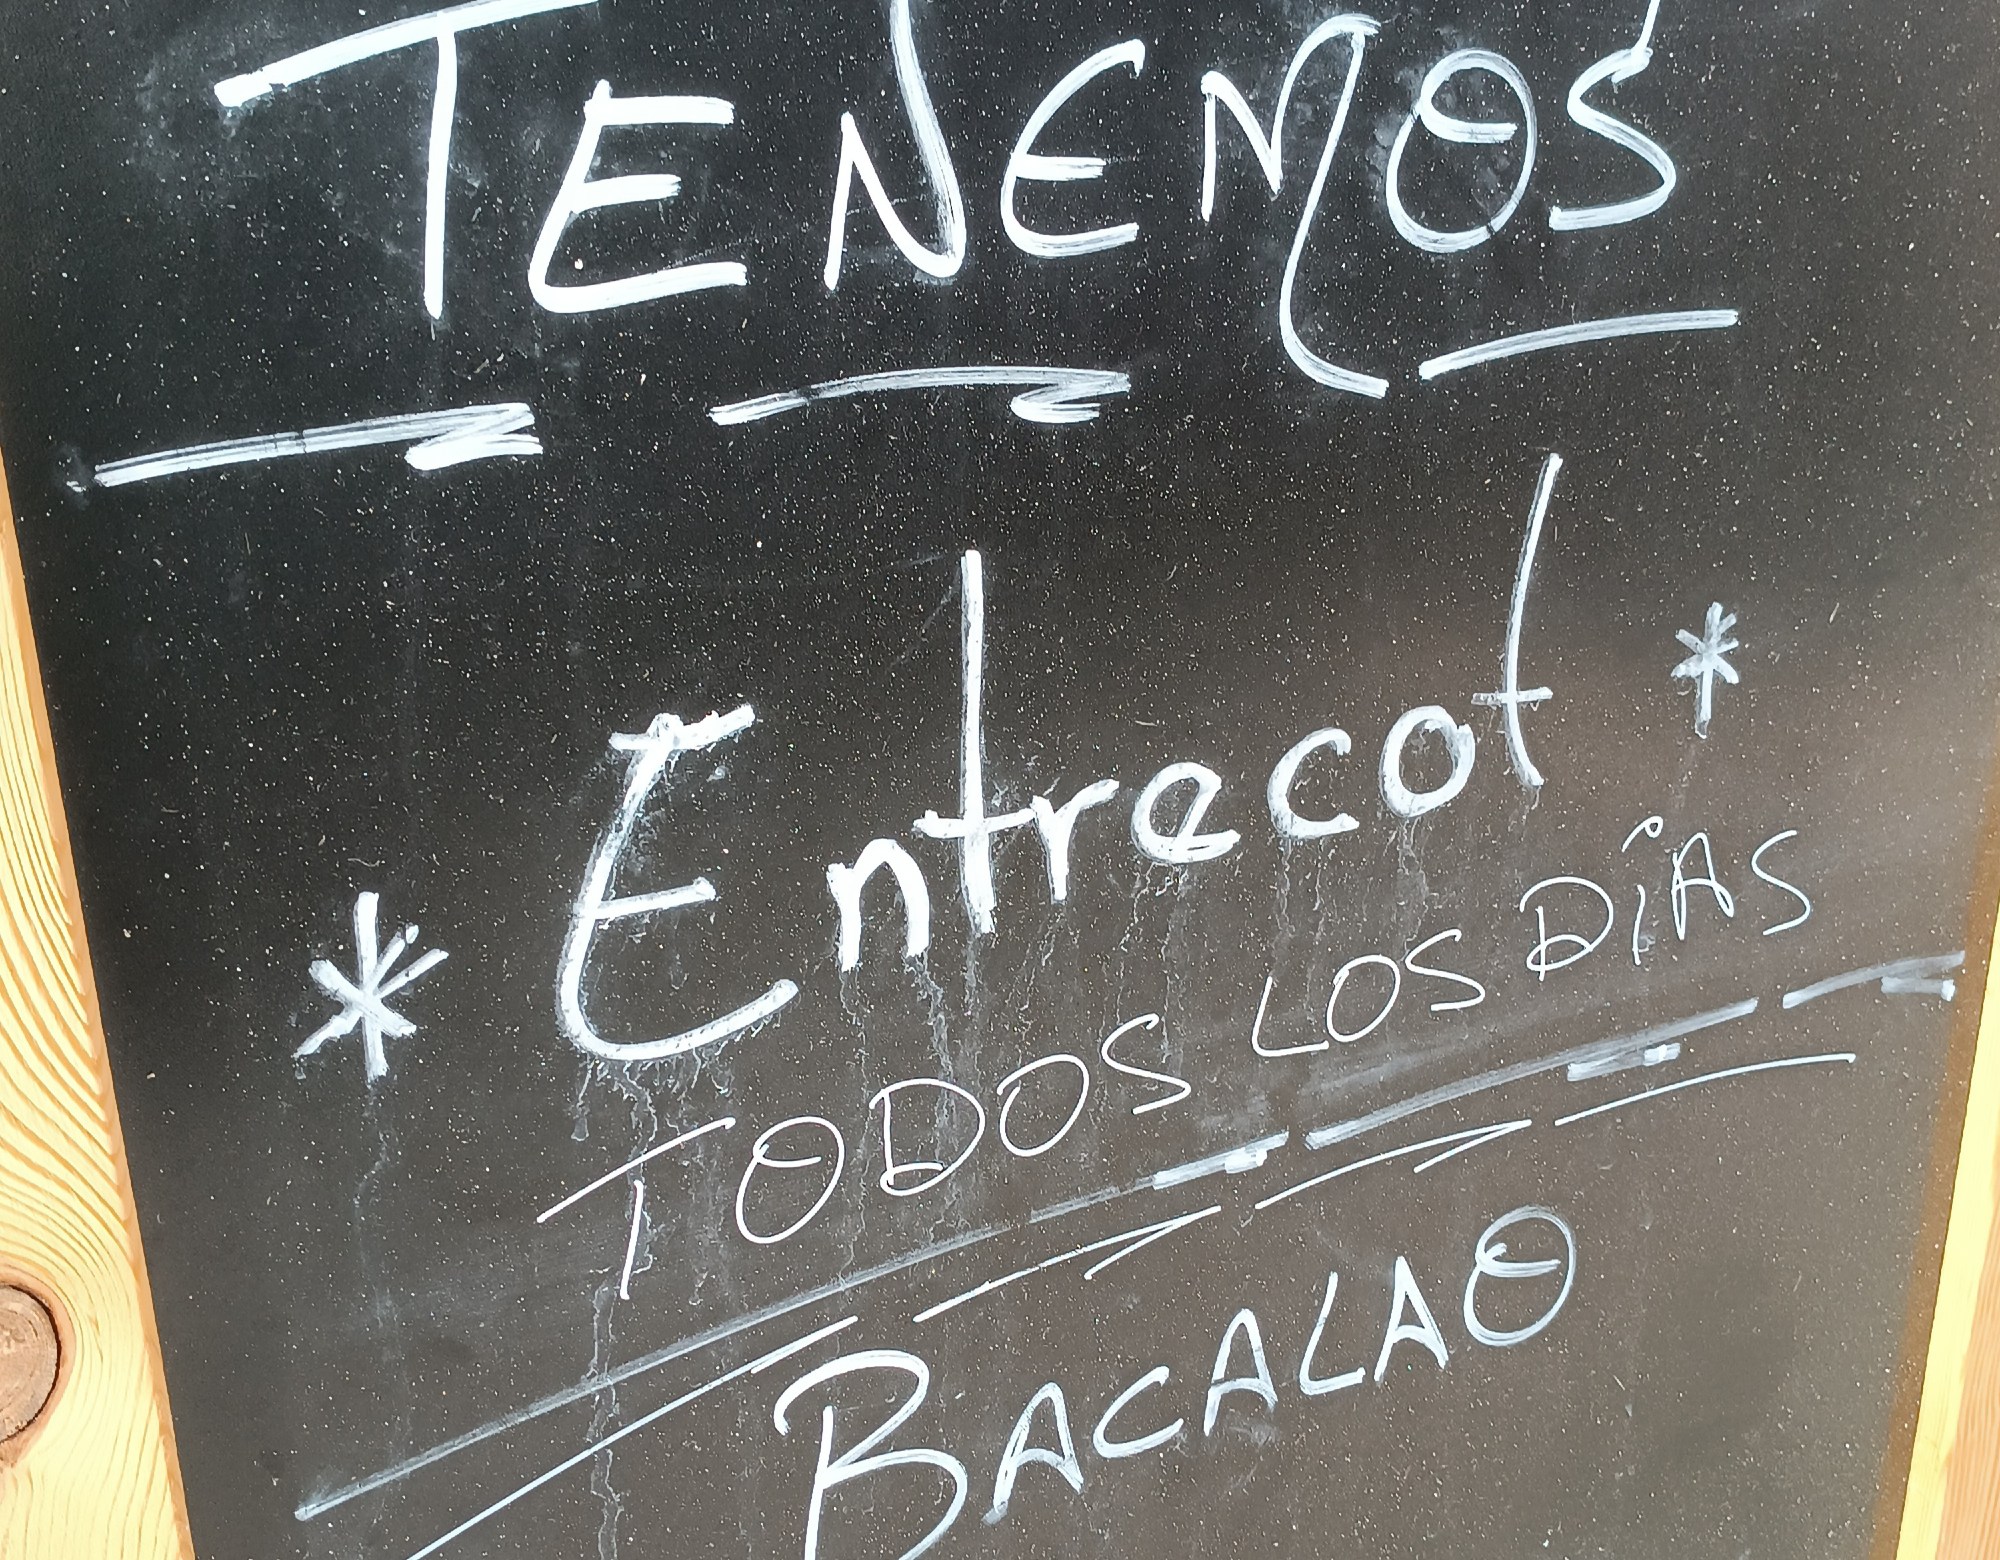 TENEMOS
* Entrecot *
TODOS LOS DÍAS
BACALAO